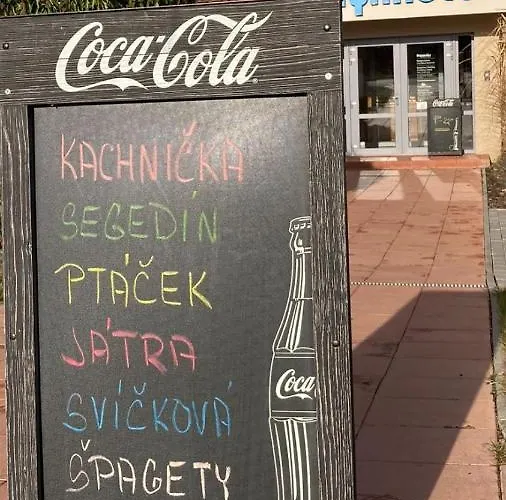 Coca-Cola
KACHNIČKA
SEGEDÍN
PTÁČEK
JÁTRA
SVÍČKOVÁ
ŠPAGETY
Coca
Coca-Cola